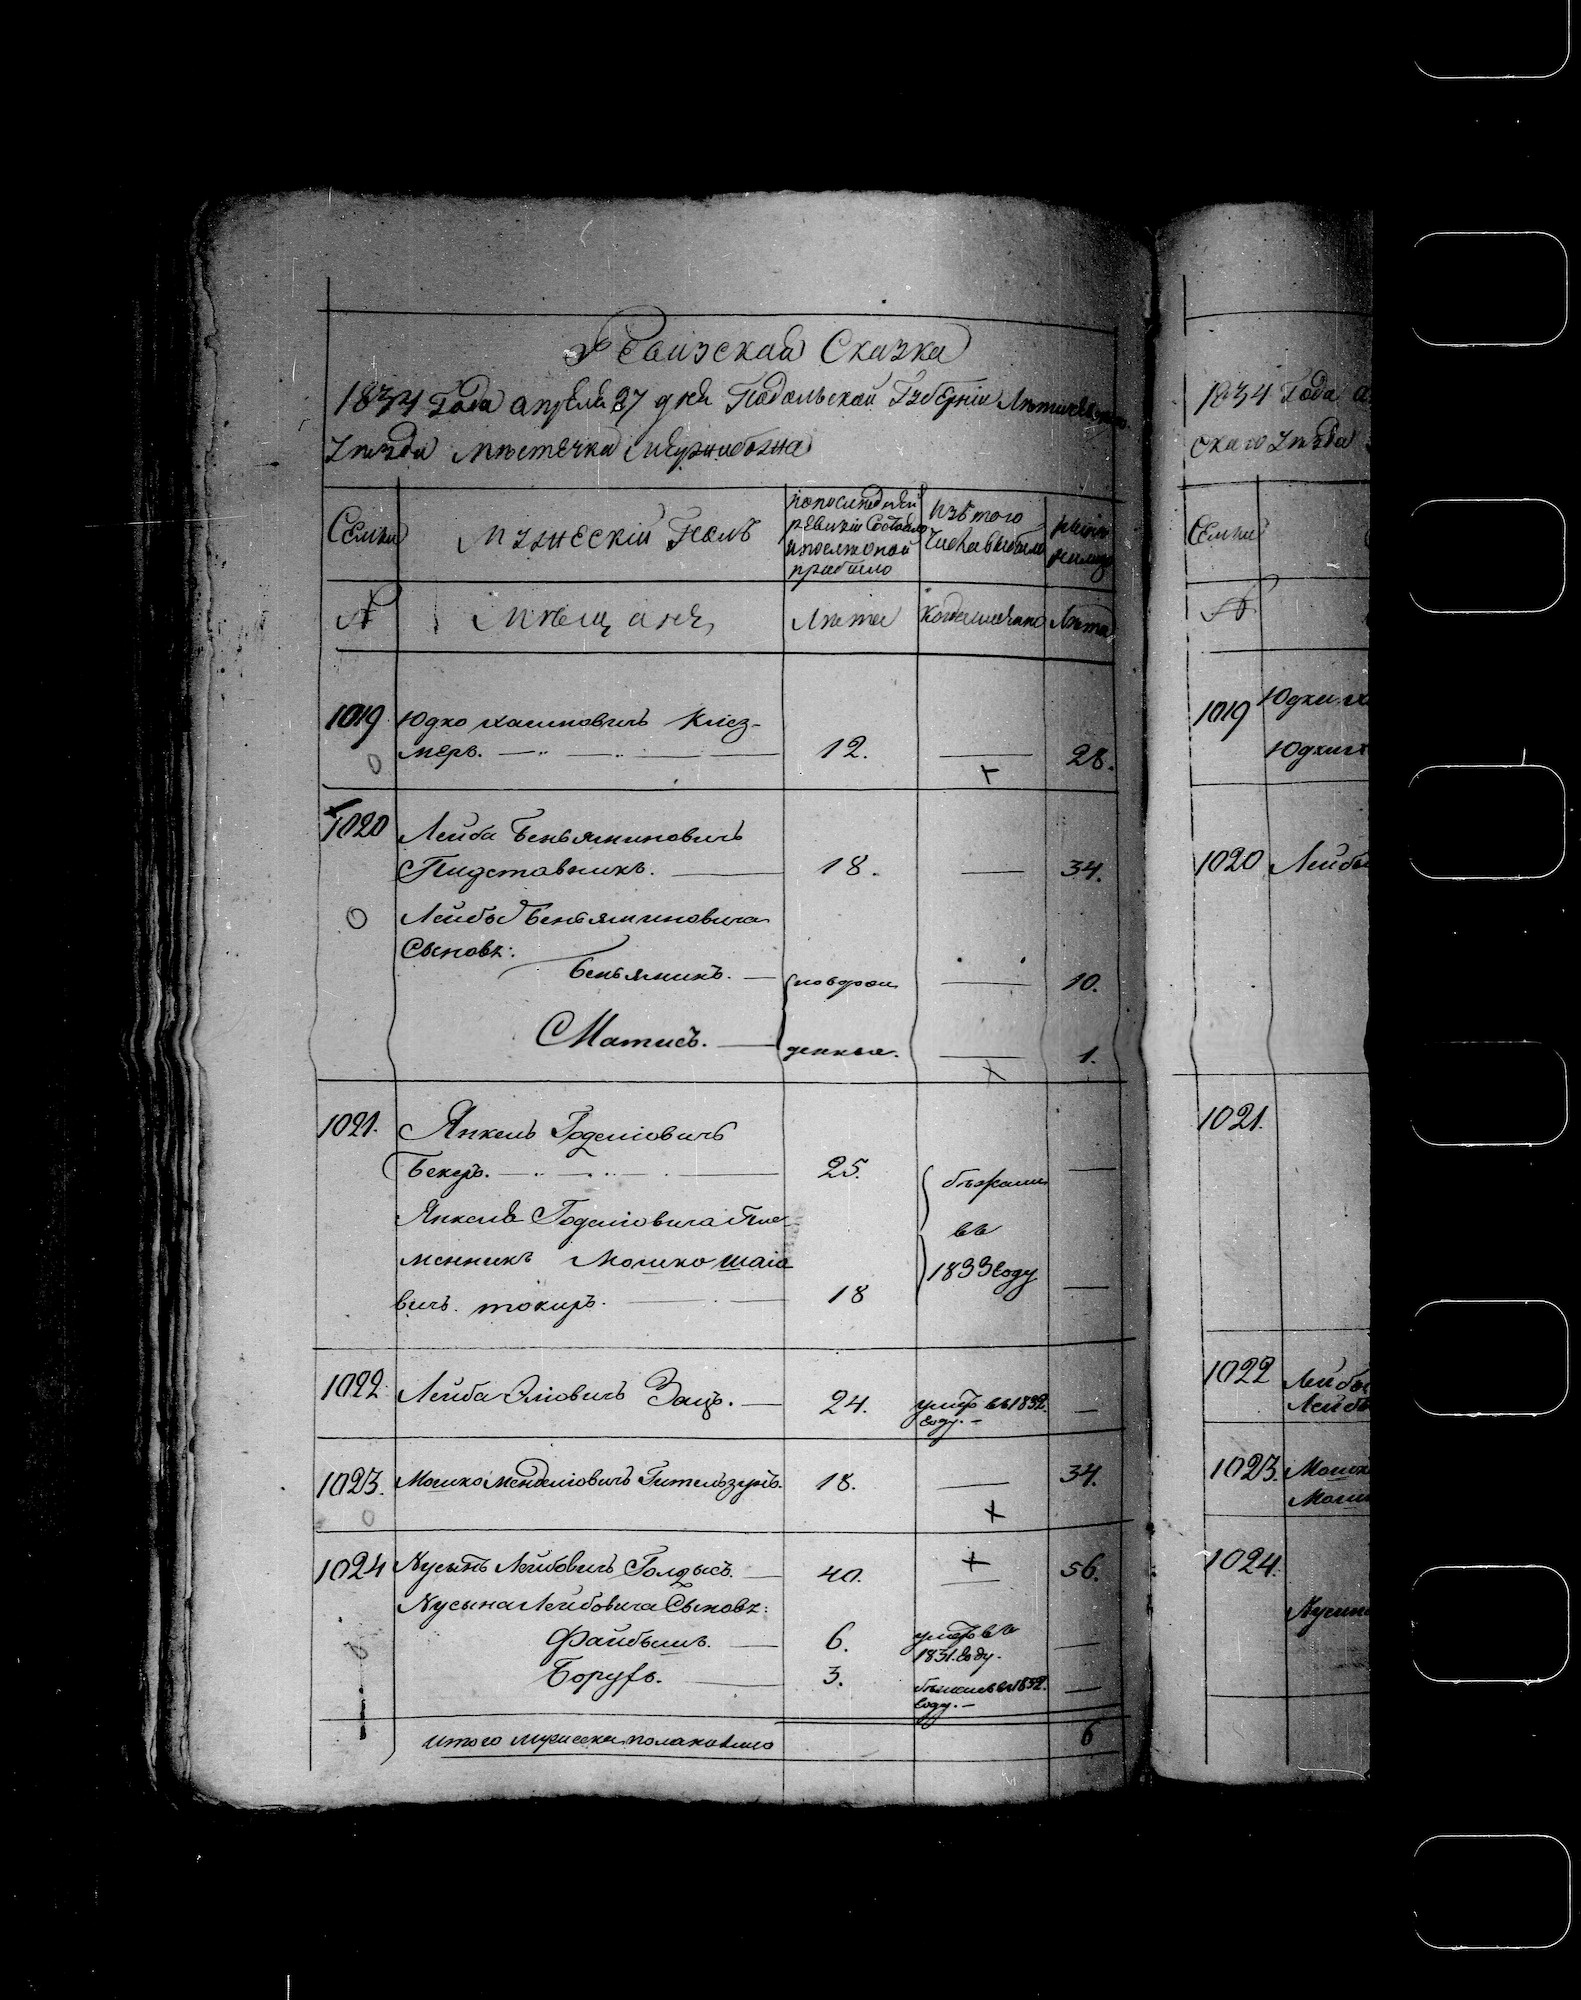 Ревизская Сказка
1834 Года апреля 27 дня Подольской Губернии
уезда местечка Меджибожа
Семьи
мужескій Полъ
по последней
ревизіи Состояло
и после оной
прибыло
Изъ того
Числа выбыло
№
мещане,
Лета
Когда именно
Лета
1019
Юдко Хаимовичъ Клез-
меръ.
12.
28.
1020
Лейба Беньяминовичъ
Пидставникъ.
18.
34.
Лейбы Беньяминовича
Сыновъ:
Беньяминъ.
новорож
10.
Матисъ.
денные.
1.
1021.
Янкель Годеліовичъ
Бекеръ.
25.
бежали
въ
1833 году
Янкеля Годеліовича Пле-
менникъ Мошко шаіо
вичъ. токаръ.
18
1022
Лейба Эліовичъ Заецъ.
24.
умеръ въ 1832.
году.
1023.
Мошко Менделіовичъ Гительзунъ.
18.
34.
1024
Нусынъ Лейбовичъ Голдысъ.
40.
56.
Нусына Лейбовича Сыновъ:
Файбышъ.
6.
умеръ въ
1831. году.
Борухъ.
3.
бежалъ въ 1832.
году.
итого мужеска пола на лицо
6
1834 Года а
скаго уезда
Семьи
№
1019
Юдки
Юдки
1020
Лейбы
1021.
1022
Лейбы
Лейбы
1023.
Мошк
Мошк
1024.
Нусына